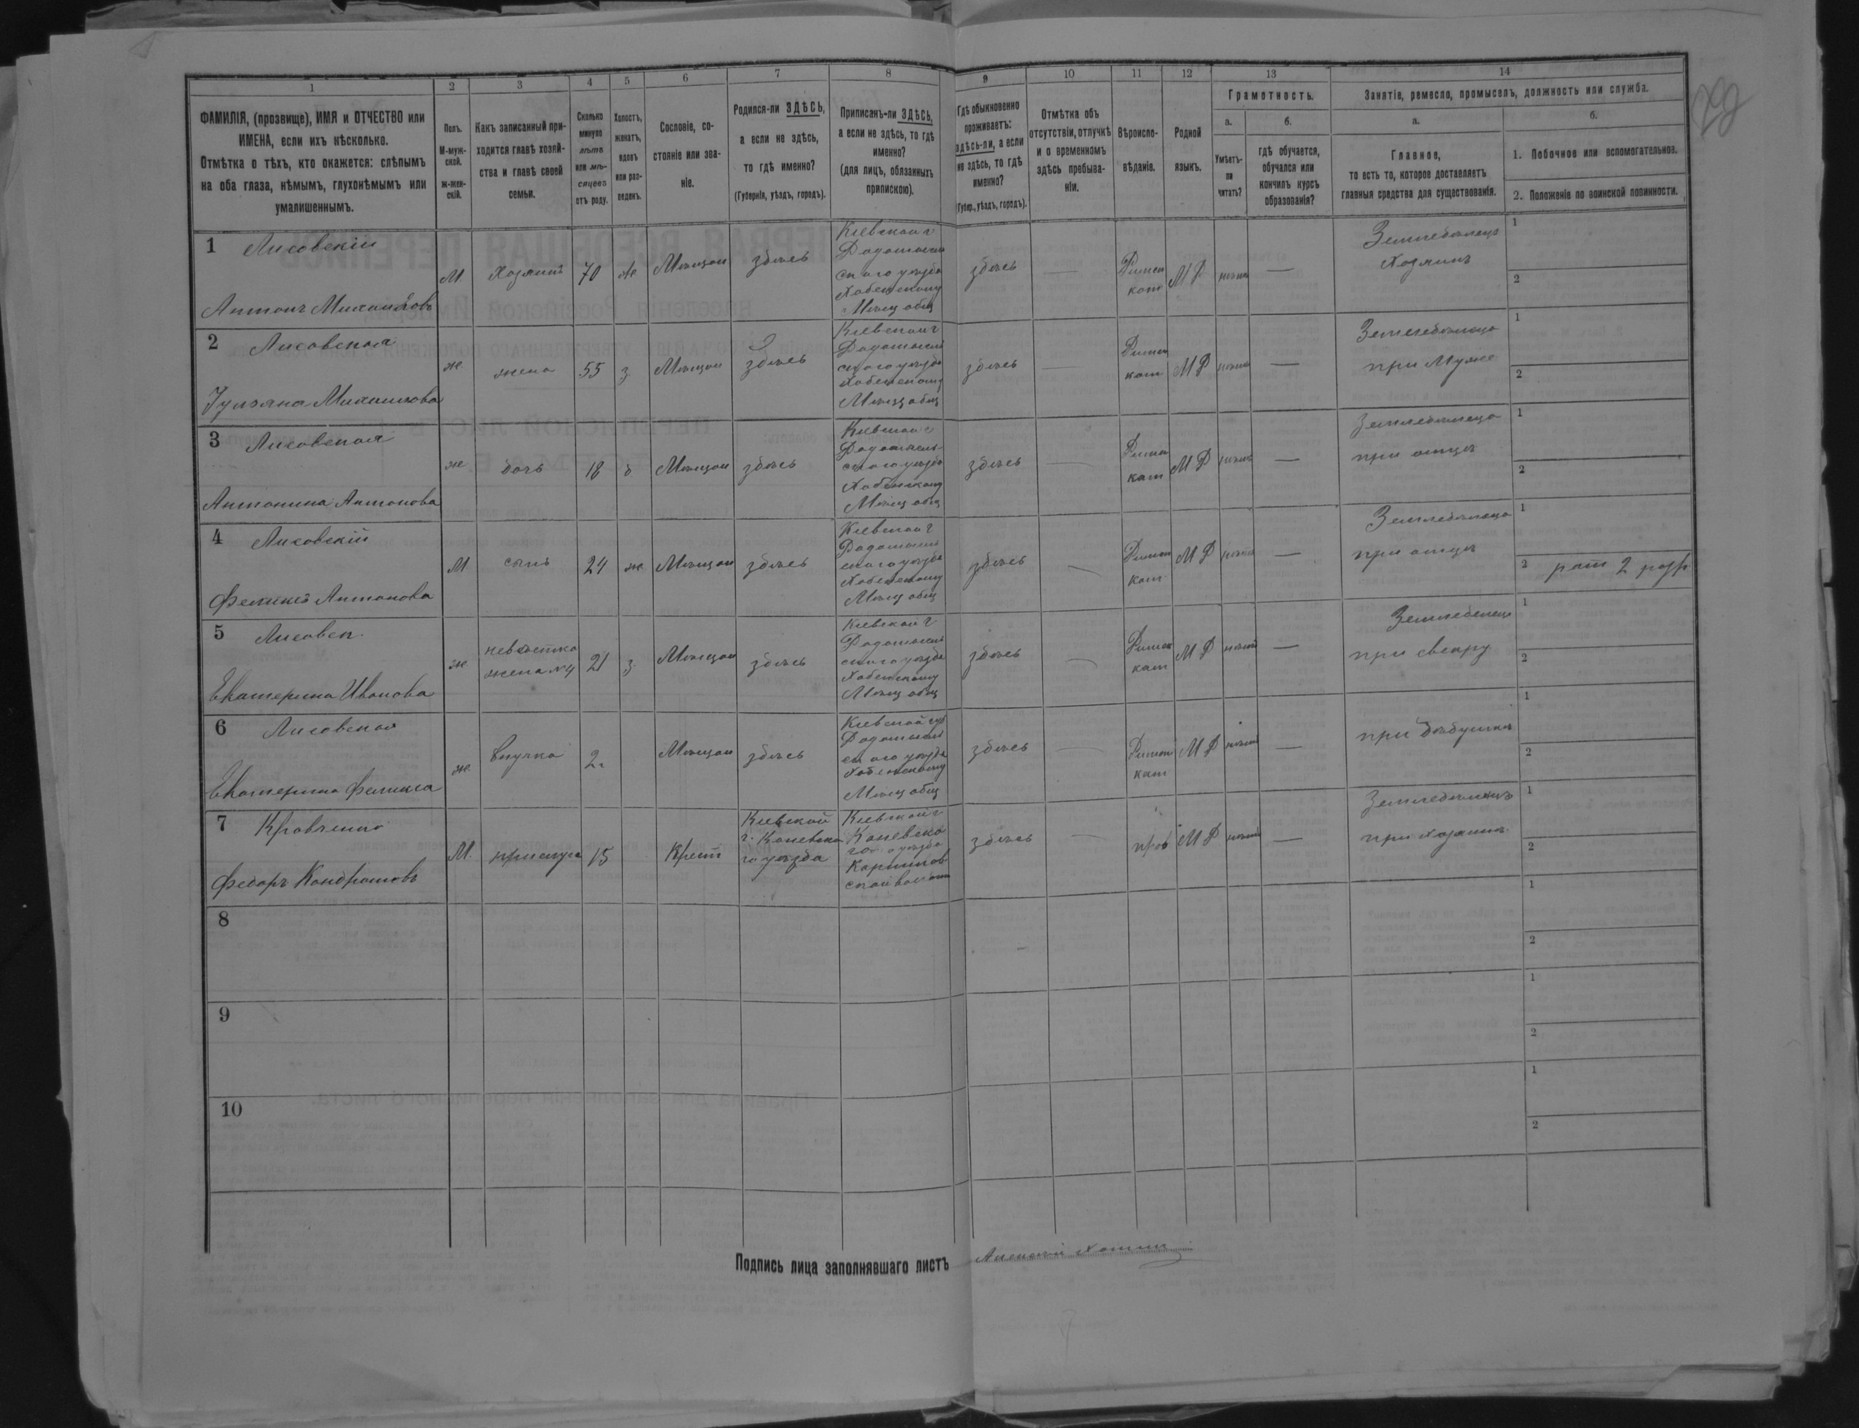 1 2 3 4 5 6 7 8 9 10 11 12 13 14
ФАМИЛІЯ, (прозвище), ИМЯ и ОТЧЕСТВО или
ИМЕНА, если ихъ нѣсколько.
Отмѣтка о тѣхъ, кто окажется: слѣпымъ
на оба глаза, нѣмымъ, глухонѣмымъ или
умалишеннымъ.
Полъ.
М-муж-
ской.
ж-жен-
скій.
Какъ записанный при-
ходится главѣ хозяй-
ства и главѣ своей
семьи.
Сколько
минуло
лѣтъ
или мѣ-
сяцевъ
отъ роду.
Холостъ,
женатъ,
вдовъ
или раз-
веденъ.
Сословіе, со-
стояніе или зва-
ніе.
Родился-ли ЗДѢСЬ,
а если не здѣсь,
то гдѣ именно?
(Губернія, уѣздъ, городъ).
Приписанъ-ли ЗДѢСЬ,
а если не здѣсь, то гдѣ
именно?
(для лицъ, обязанныхъ
припискою).
Гдѣ обыкновенно
проживаетъ:
здѣсь-ли, а если
не здѣсь, то гдѣ
именно?
(Губер., уѣздъ, городъ).
Отмѣтка объ
отсутствіи, отлучкѣ
и о временномъ
здѣсь пребыва-
ніи.
Вѣроиспо-
вѣданіе.
Родной
языкъ.
Грамотность.
а.
Умѣетъ-
ли
читать?
б.
гдѣ обучается,
обучался или
кончилъ курсъ
образованія?
Занятіе, ремесло, промыселъ, должность или служба.
а.
Главное,
то есть то, которое доставляетъ
главныя средства для существованія.
б.
1. Побочное или вспомогательное.
2. Положеніе по воинской повинности.
1 Лисовскій
Антонъ Михайловъ
М
Хозяинъ
70
ж
Мѣщан
здѣсь
Кіевской г
Радомысль
скаго уѣзда
Хабенскому
Мѣщ общ
здѣсь
—
Римск
кат
МР
—
Земледѣлецъ
Хозяинъ
1
2
2 Лисовская
Ульяна Михаилова
ж
жена
55
з
Мѣщан
здѣсь
Кіевской г
Радомысль
скаго уѣзда
Хабенскому
Мѣщ общ
здѣсь
—
Римск
кат
МР
—
Земледѣлецъ
при Мужѣ
1
2
3 Лисовская
Антонина Антонова
ж
дочь
18
д
Мѣщан
здѣсь
Кіевской г
Радомысль
скаго уѣзда
Хабенскому
Мѣщ общ
здѣсь
—
Римск
кат
МР
—
Земледѣлецъ
при отцѣ
1
2
4 Лисовскій
Феликсъ Антоновъ
М
сынъ
24
ж
Мѣщан
здѣсь
Кіевской г
Радомысль
скаго уѣзда
Хабенскому
Мѣщ общ
здѣсь
—
Римск
кат
МР
—
Земледѣлецъ
при отцѣ
1
2 рат 2 разр
5 Лисовск
Екатерина Иванова
ж
невѣстка
жена №4
21
з
Мѣщан
здѣсь
Кіевской г
Радомысль
скаго уѣзда
Хабенскому
Мѣщ общ
здѣсь
—
Римск
кат
МР
—
Земледѣлецъ
при свекру
1
2
6 Лисовская
Екатерина Феликса
ж
внучка
2
Мѣщан
здѣсь
Кіевской г
Радомысль
скаго уѣзда
Хабенскому
Мѣщ общ
здѣсь
—
Римск
кат
МР
—
при дѣдушкѣ
1
2
7 Кравченко
Федоръ Кондратовъ
М
прислуга
15
Крест
Кіевской
г. Каневска
го уѣзда
Кіевской г
Каневска
го уѣзда
здѣсь
—
прав
МР
—
Земледѣлецъ
при хозяинѣ
1
2
8
1
2
9
1
2
10
1
2
Подпись лица заполнявшаго листъ